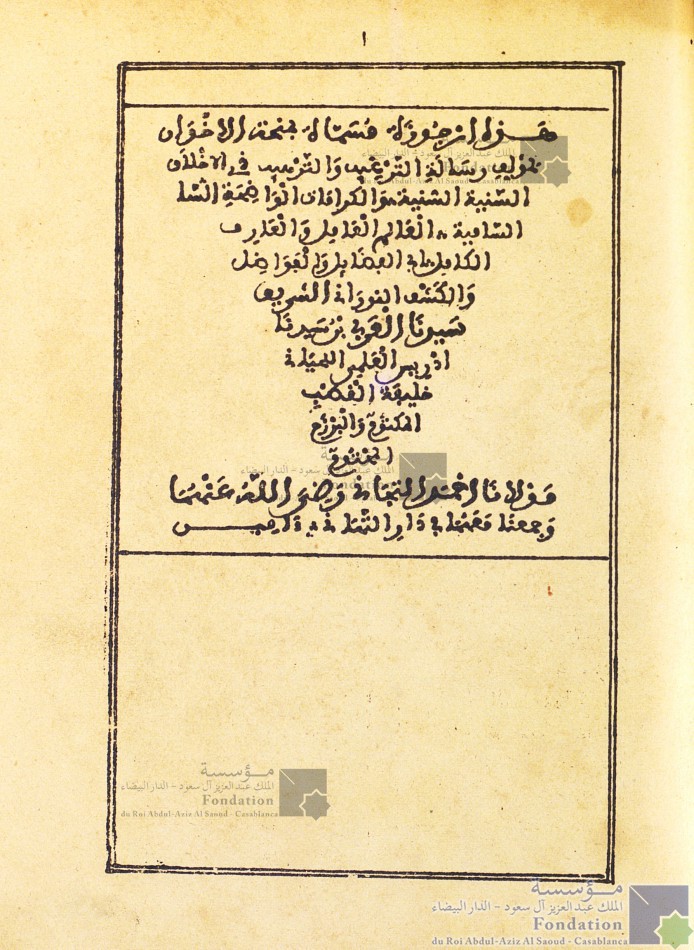 ١
هذه ارجوزة مسماة بمنحة الاخوان
لمؤلف رسالة الترغيب والترهيب في الاخلاق
السنية السنية والكرامات الواضحة السا
السامية العالم العامل والعارف
الكامل في الفضايل والفواضل
والكشف النوراني الشريف
سيدنا العربي بن سيدنا
ادريس العلمي اللحياني
خليفة القطب
المكتوم والبرزخ
المختوم
مولانا احمد التجاني رضي الله عنهما
وجمعنا معهما في دار التهاني
مؤسسة
الملك عبد العزيز آل سعود - الدار البيضاء
Fondation
du Roi Abdul-Aziz Al Saoud - Casablanca
مؤسسة
الملك عبد العزيز آل سعود - الدار البيضاء
Fondation
du Roi Abdul-Aziz Al Saoud - Casablanca